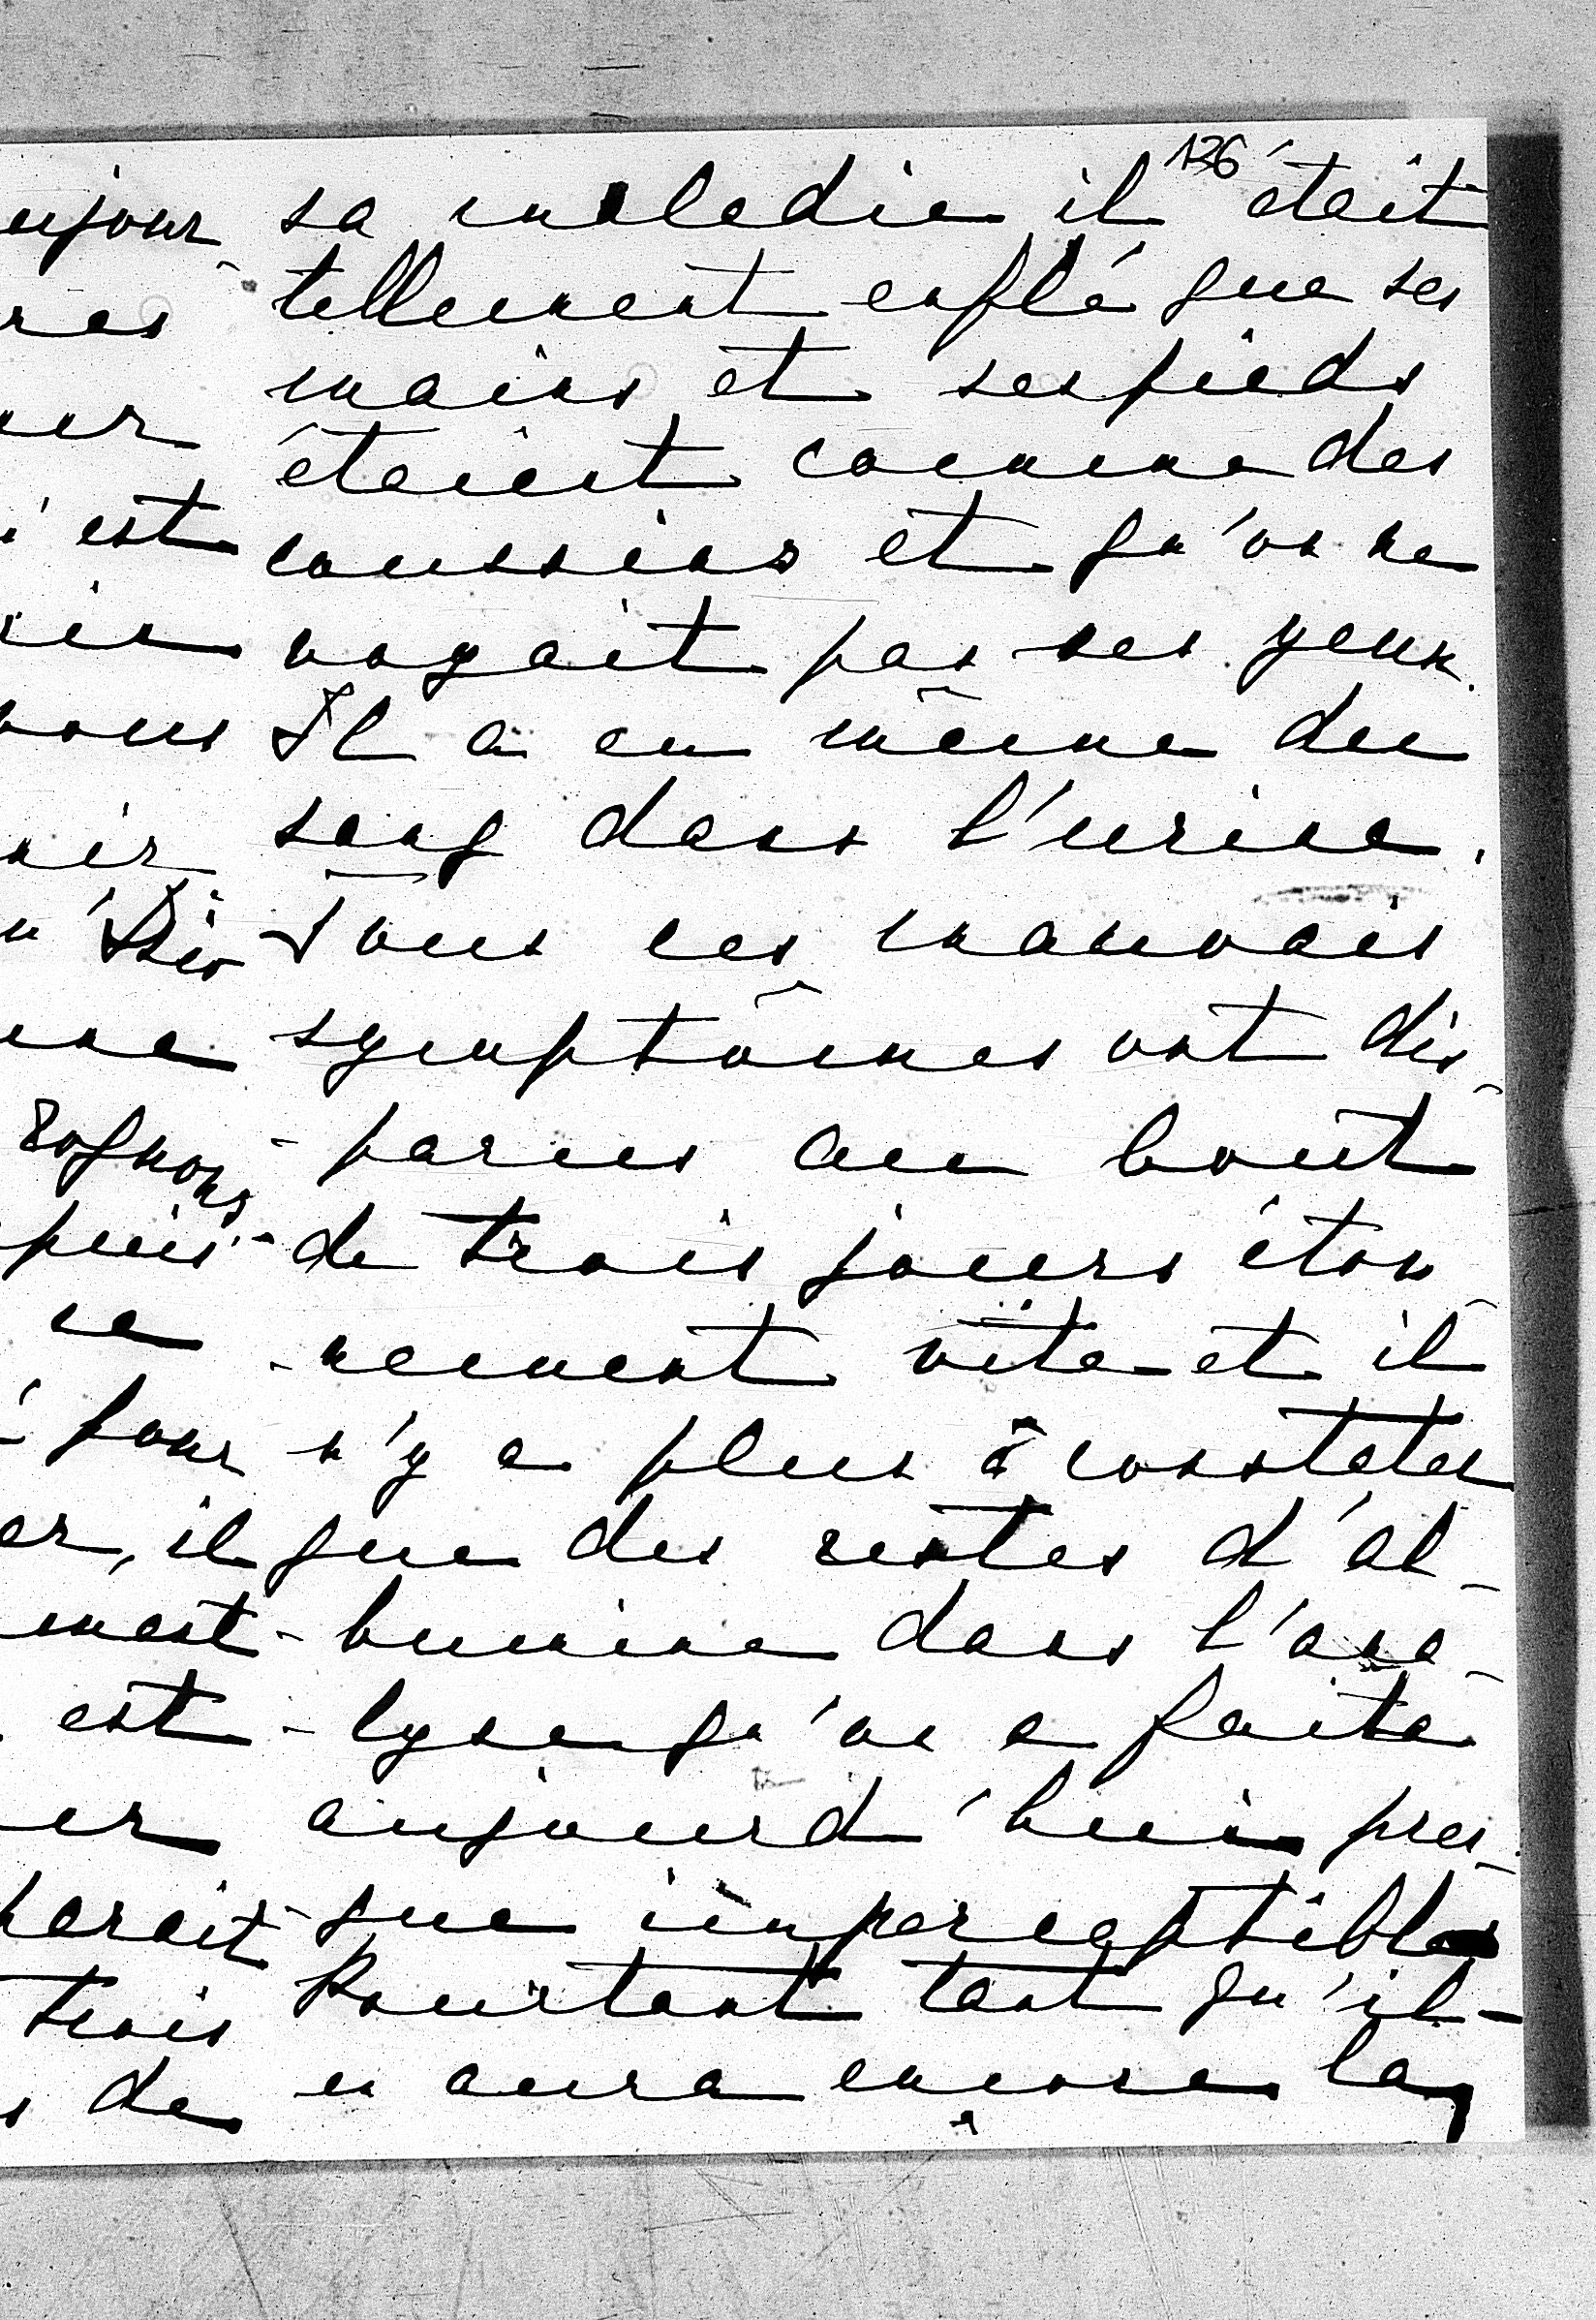 136
sa maladie il était
tellement enflé que ses
mains et ses pieds
étaient comme des
coussins et qu'on ne
voyait pas ses yeux.
Il a eu même du
sang dans l'urine.
Tous ces mauvais
symptômes ont dis-
-parus au bout
de trois jours éton
-nement vite et il
n'y a plus à constater
que des restes d'al-
-bumine dans l'ana-
-lyse qu'on a faite
aujourd'hui pres-
que imperceptibles
Pourtant tant qu'il-
y aura encore la
ujour-
res
est
vous
rognons
puis-
ce
pour
er, il
ment
est
parait
trois
de